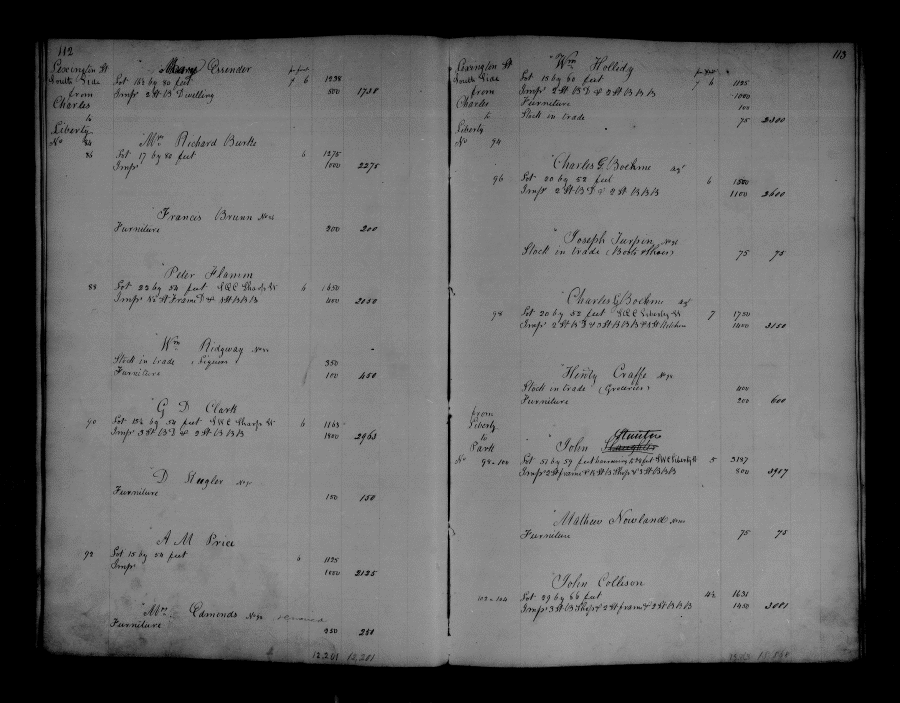 112
Lexington St
South Side
from
Charles
to
Liberty
No 84
Mary Essender
Lot 15½ by 80 feet 7 6 1238
Imps 2 St B Dwelling 500 1738
Mrs Richard Burke
86 Lot 17 by 80 feet 6 1275
Imps 1000 2275
Francis Brunn No 86
Furniture 200 200
Peter Flamm
88 Lot 22 by 54 feet S&C Sharp St 6 1650
Imps 400 2050
Wm Ridgway
Stock in trade Liquors 350
Furniture 100 450
G D Clark
90 Lot 15½ by 54 feet S&C Sharp St 6 1163
Imps 3 St B D & 2 St B B B 1800 2963
D Stugler No 90
Furniture 150 150
A M Price
92 Lot 15 by 54 feet 6 1125
Imps 1000 2125
Mrs Edmonds No 92
Furniture 250 250
12,201 12,201
113
Lexington St
South Side
from
Charles
to
Liberty
No 94
Wm Hollidy
Lot 15 by 60 feet 7 6 1125
Imps 2 St B D & 2 St B B B 1000
Furniture 100
Stock in trade 75 2300
Charles G. Boehme agt
96 Lot 20 by 52 feet 6 1500
Imps 2 St B D & 2 St B B B 1100 2600
Joseph Turpin No 96
Stock in trade (Boots & Shoes) 75 75
Charles G Boehme agt
98 Lot 20 by 52 feet S&C Liberty St 7 1750
Imps 2 St B D & 3 St B B B & 1 St Kitchen 1400 3150
Henry Crafft No 98
Stock in trade (Groceries) 400
Furniture 200 600
from
Liberty
to
Park
No 98-100
John
Lot 51 by 59 feet S W C Liberty St 5 3187
Imps 2 St frame 800 3987
Mathew Nowland
Furniture 75 75
John Collison
102-104 Lot 29 by 66 feet 4½ 1631
Imps 3 St B Shop & 2 St frame & 2 St B B B 1450 3081